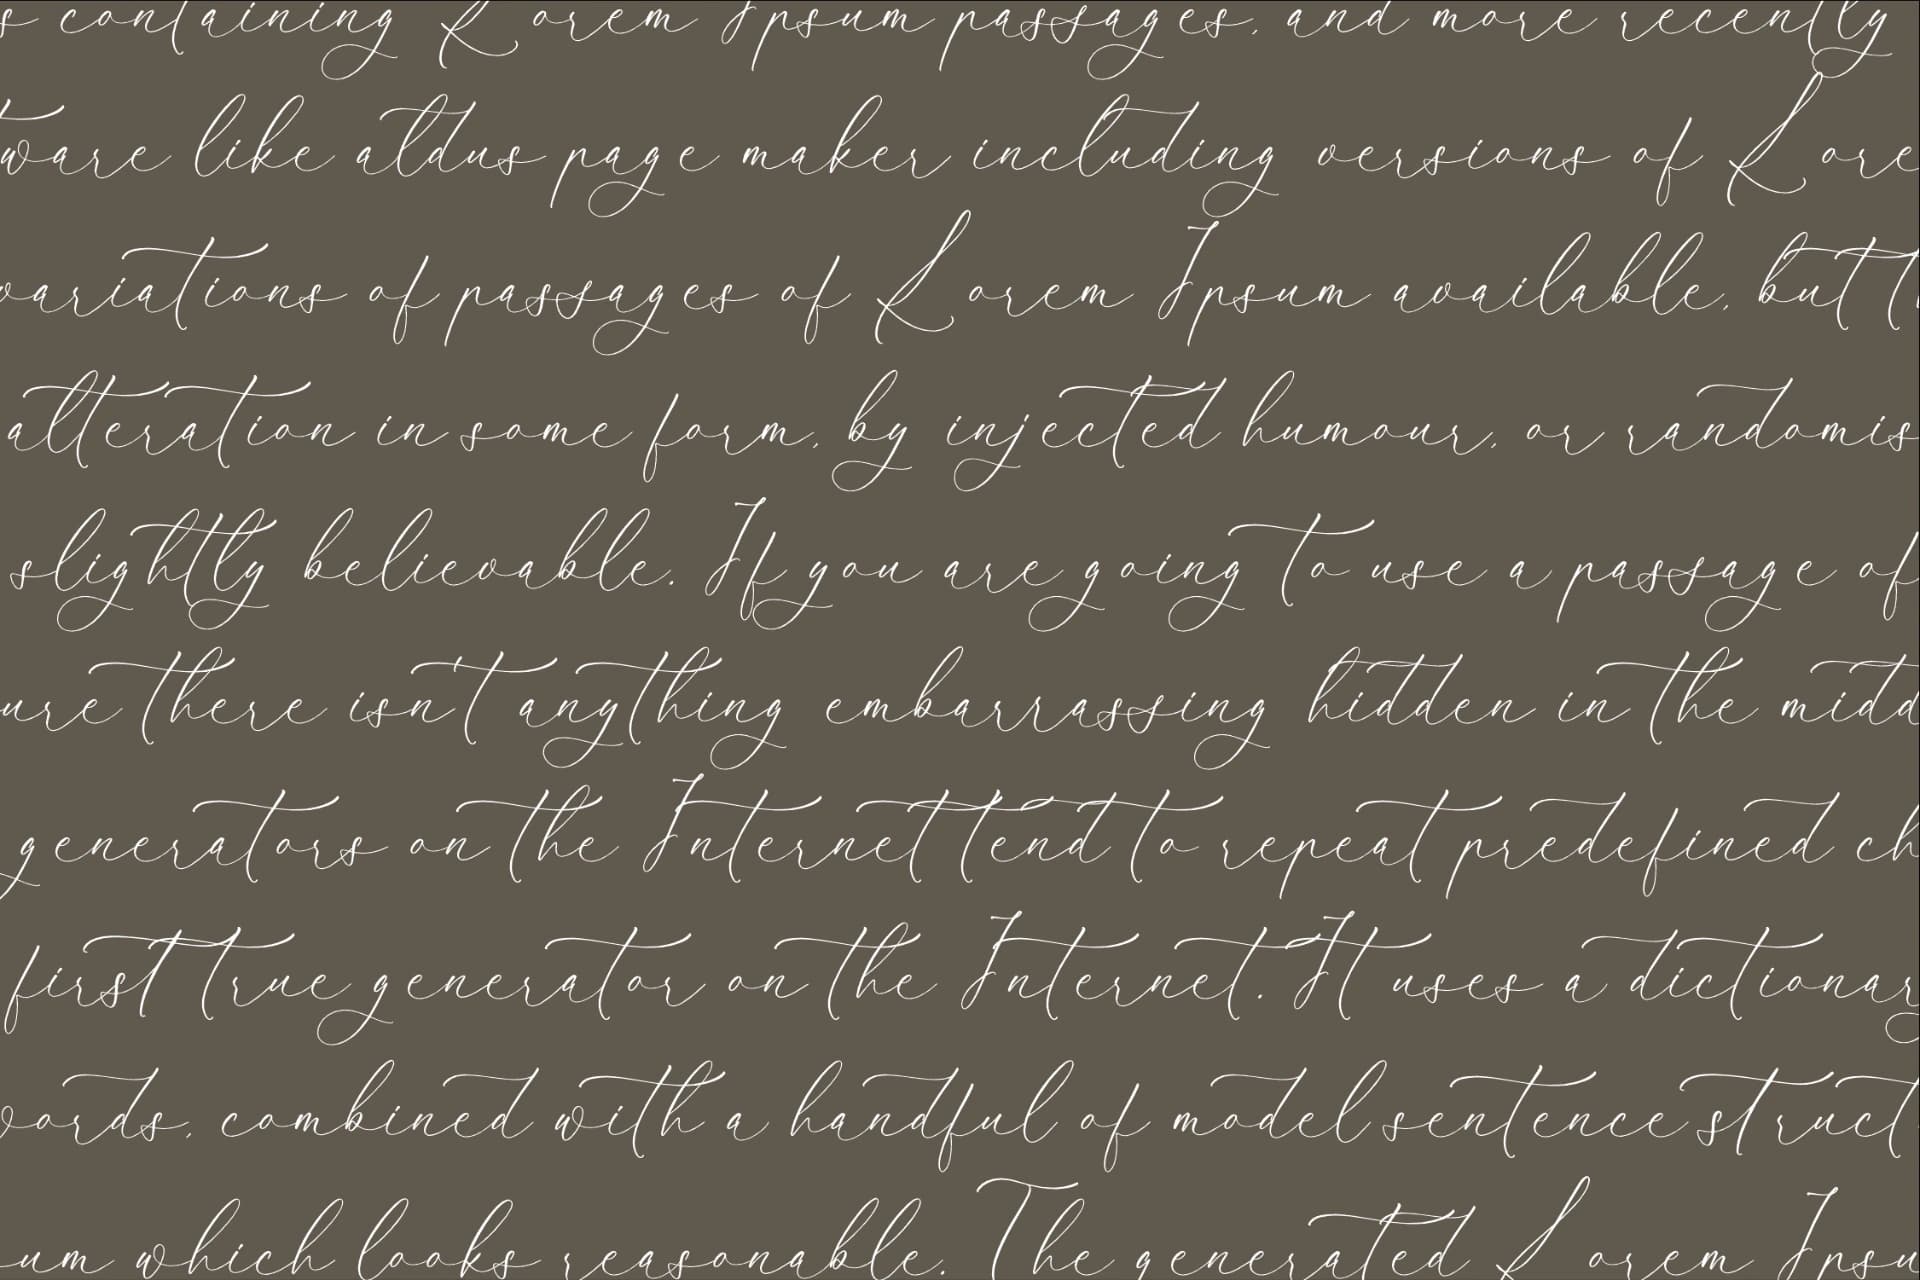 s containing Lorem Ipsum passages, and more recently
tware like aldus page maker including versions of Lore
variations of passages of Lorem Ipsum available, but th
alteration in some form, by injected humour, or randomis
slightly believable. If you are going to use a passage of
ure there isn't anything embarrassing hidden in the midd
generators on the Internet tend to repeat predefined ch
first true generator on the Internet. It uses a dictionar
words, combined with a handful of model sentence struct
um which looks reasonable. The generated Lorem Ipsu